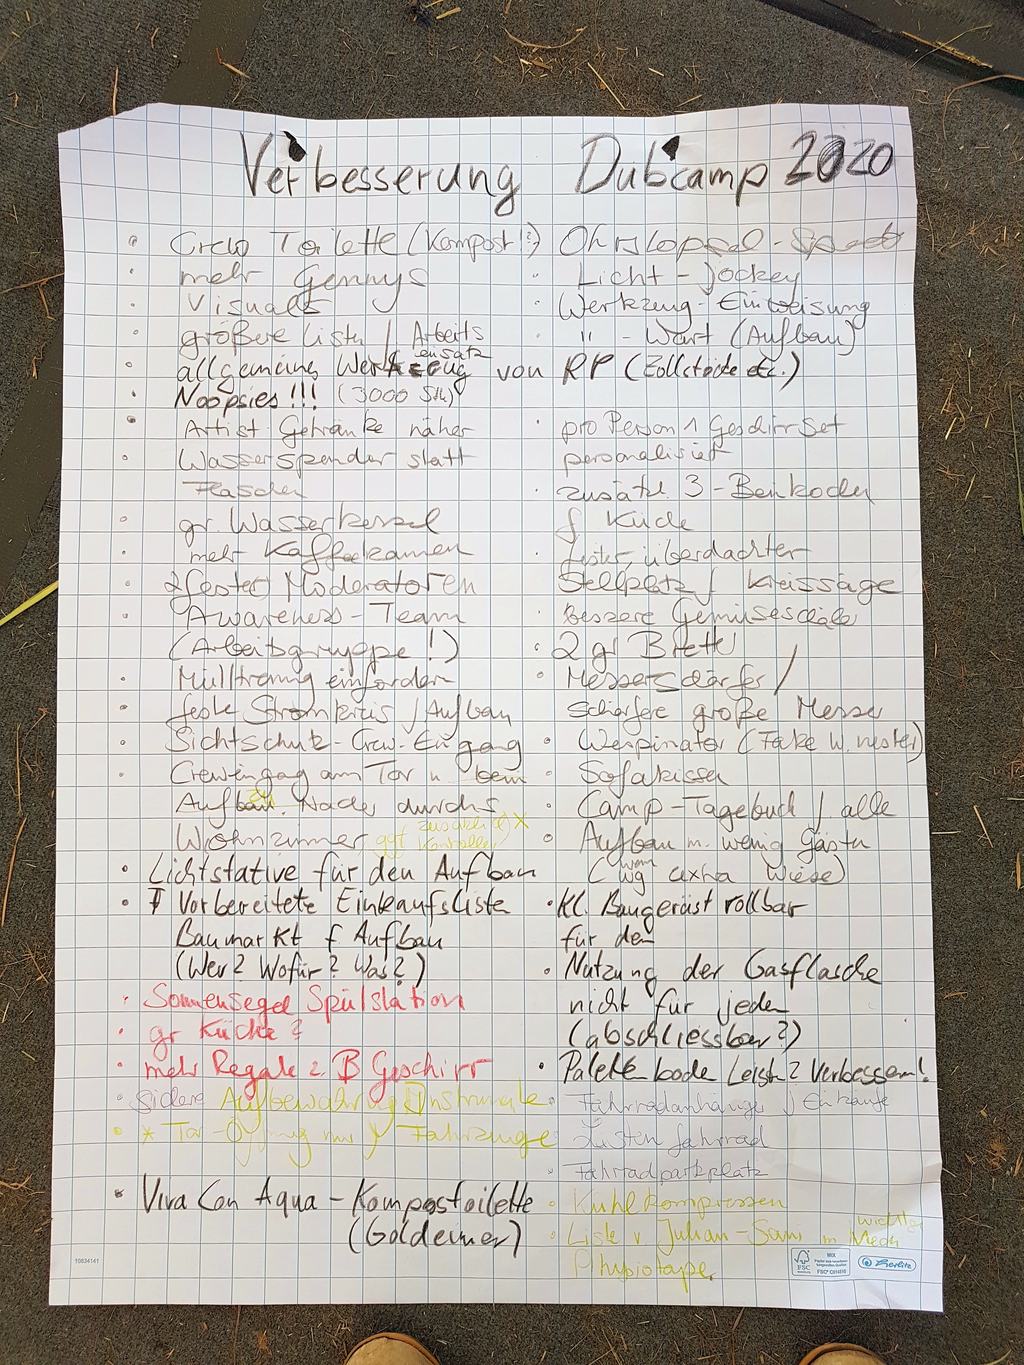 Verbesserung Dubcamp 2020
Crew Toilette (Kompost!?)
mehr Gennys
Visuals
größere Listen / Arbeits
einsatz
allgemeine Werkzeug von RP (Zollstöcke etc.)
Noopsies!!! (3000 Stk)
Artist Getränke näher
Wasserspender statt
Flaschen
gr. Wasserkessel
mehr Kaffeekannen
2 fester Moderatoren
Awareness-Team
(Arbeitsgruppe!)
Mülltrennung einfordern
feste Stromkreis / Aufbau
Sichtschutz-Crew-Eingang
Creweingang am Tor u beim
Aufbau. Nachts durchs
Wohnzimmer ggf zusätzlich X
Kontrolle
Lichtstative für den Aufbau
Vorbereitete Einkaufsliste
Baumarkt f Aufbau
(Wer? Wofür? Was?)
Sonnensegel Spülstation
gr Küche?
mehr Regale z B Geschirr
sichere Aufbewahrung Instrumente
* Tor-Öffnung nur f Fahrzeuge
Viva Con Aqua - Kompostoilette
(Goldeimer)
Ohrstöpsel-
Licht-Jockey
Werkzeug-Einweisung
" - Wart (Aufbau)
pro Person 1 Geschirrset
personalisiert
zusätzl 3-Beinkocher
f Küche
fester, überdachter
Stellplatz f Kreissäge
Bessere Gemüseschäler
2 gr Bretter
Messerschärfer /
Schärfere große Messer
Wespinator (Fake W. nester)
Sofakissen
Camp-Tagebuch / alle
Aufbau m. wenig Gästen
(wg extra Wiese)
Kl. Baugerüst rollbar
für den
Nutzung der Gasflasche
nicht für jeden
(abschliessbar?)
Paletten bode Leisten? Verbessern!
Fahrradanhänger f Einkäufe
Lastenfahrrad
Fahrradparkplatz
Kühlkompressen
Liste v. Julian-Sani m wichtig
Medi
Physiotape
10834141
FSC
MIX
herlitz